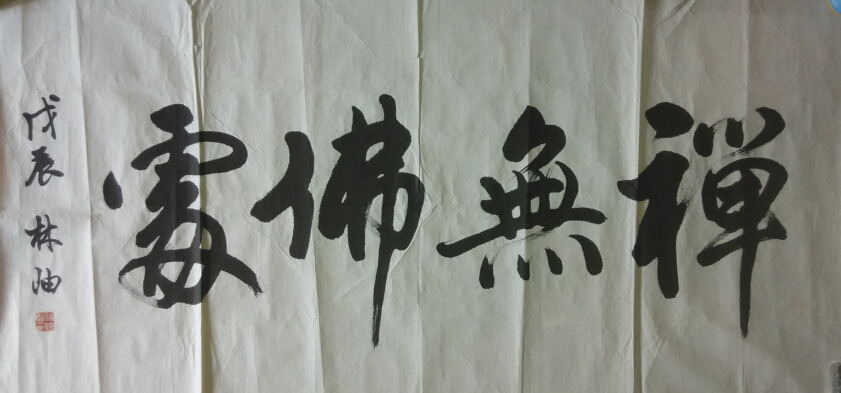 禪無佛處
戊辰 林岫